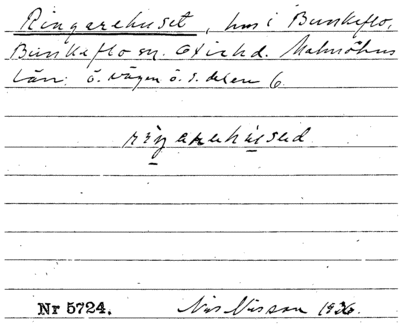 Ringarehuset, hus i Bunkeflo,
Bunkeflo sn. Oxie hd. Malmöhus
län. ö. vägen ö. s. delen 6.
Nr 5724. Nils Nilsson 1936.